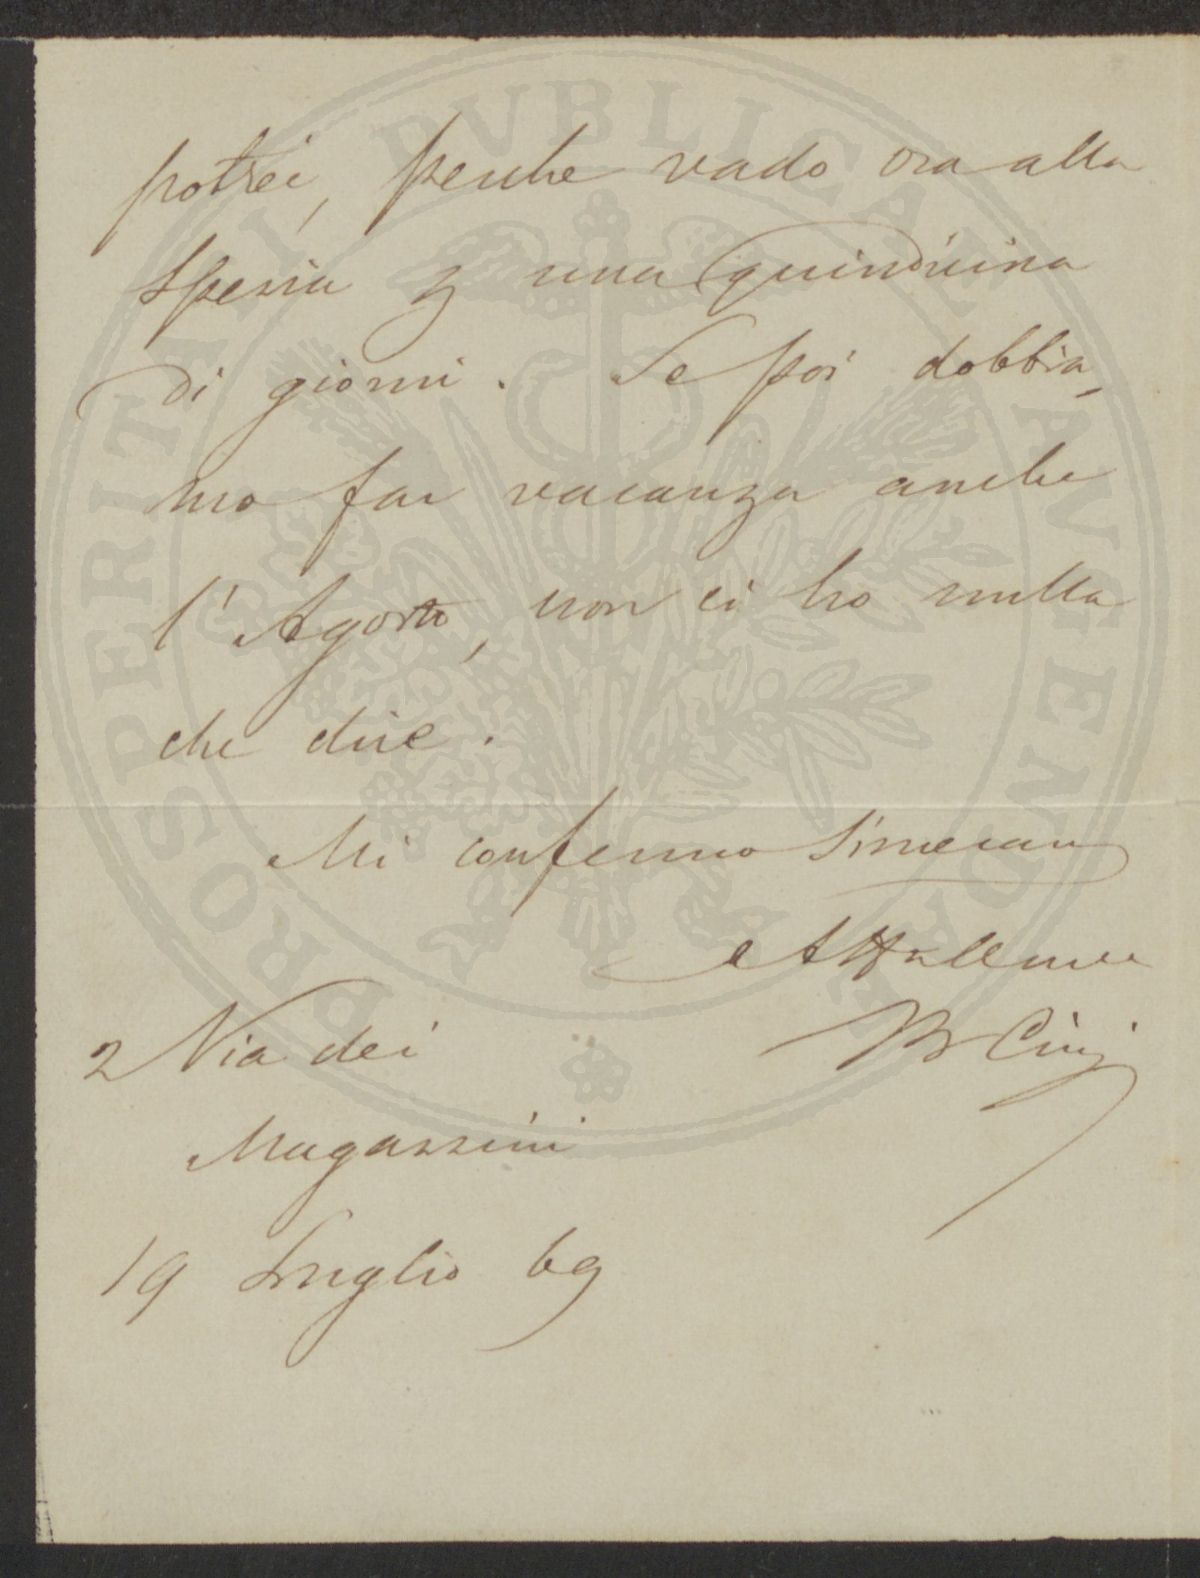 potrei, perche vado ora alla
Spezia p una quindicina
di giorni. Se poi dobbia-
mo far vacanza anche
l'Agosto, non ci ho nulla
che dire.
Mi confermo Sinceram
e
2 Via dei
Magazzini
19 Luglio 69
PROSPERITATI PVBLICAE AVGENDAE